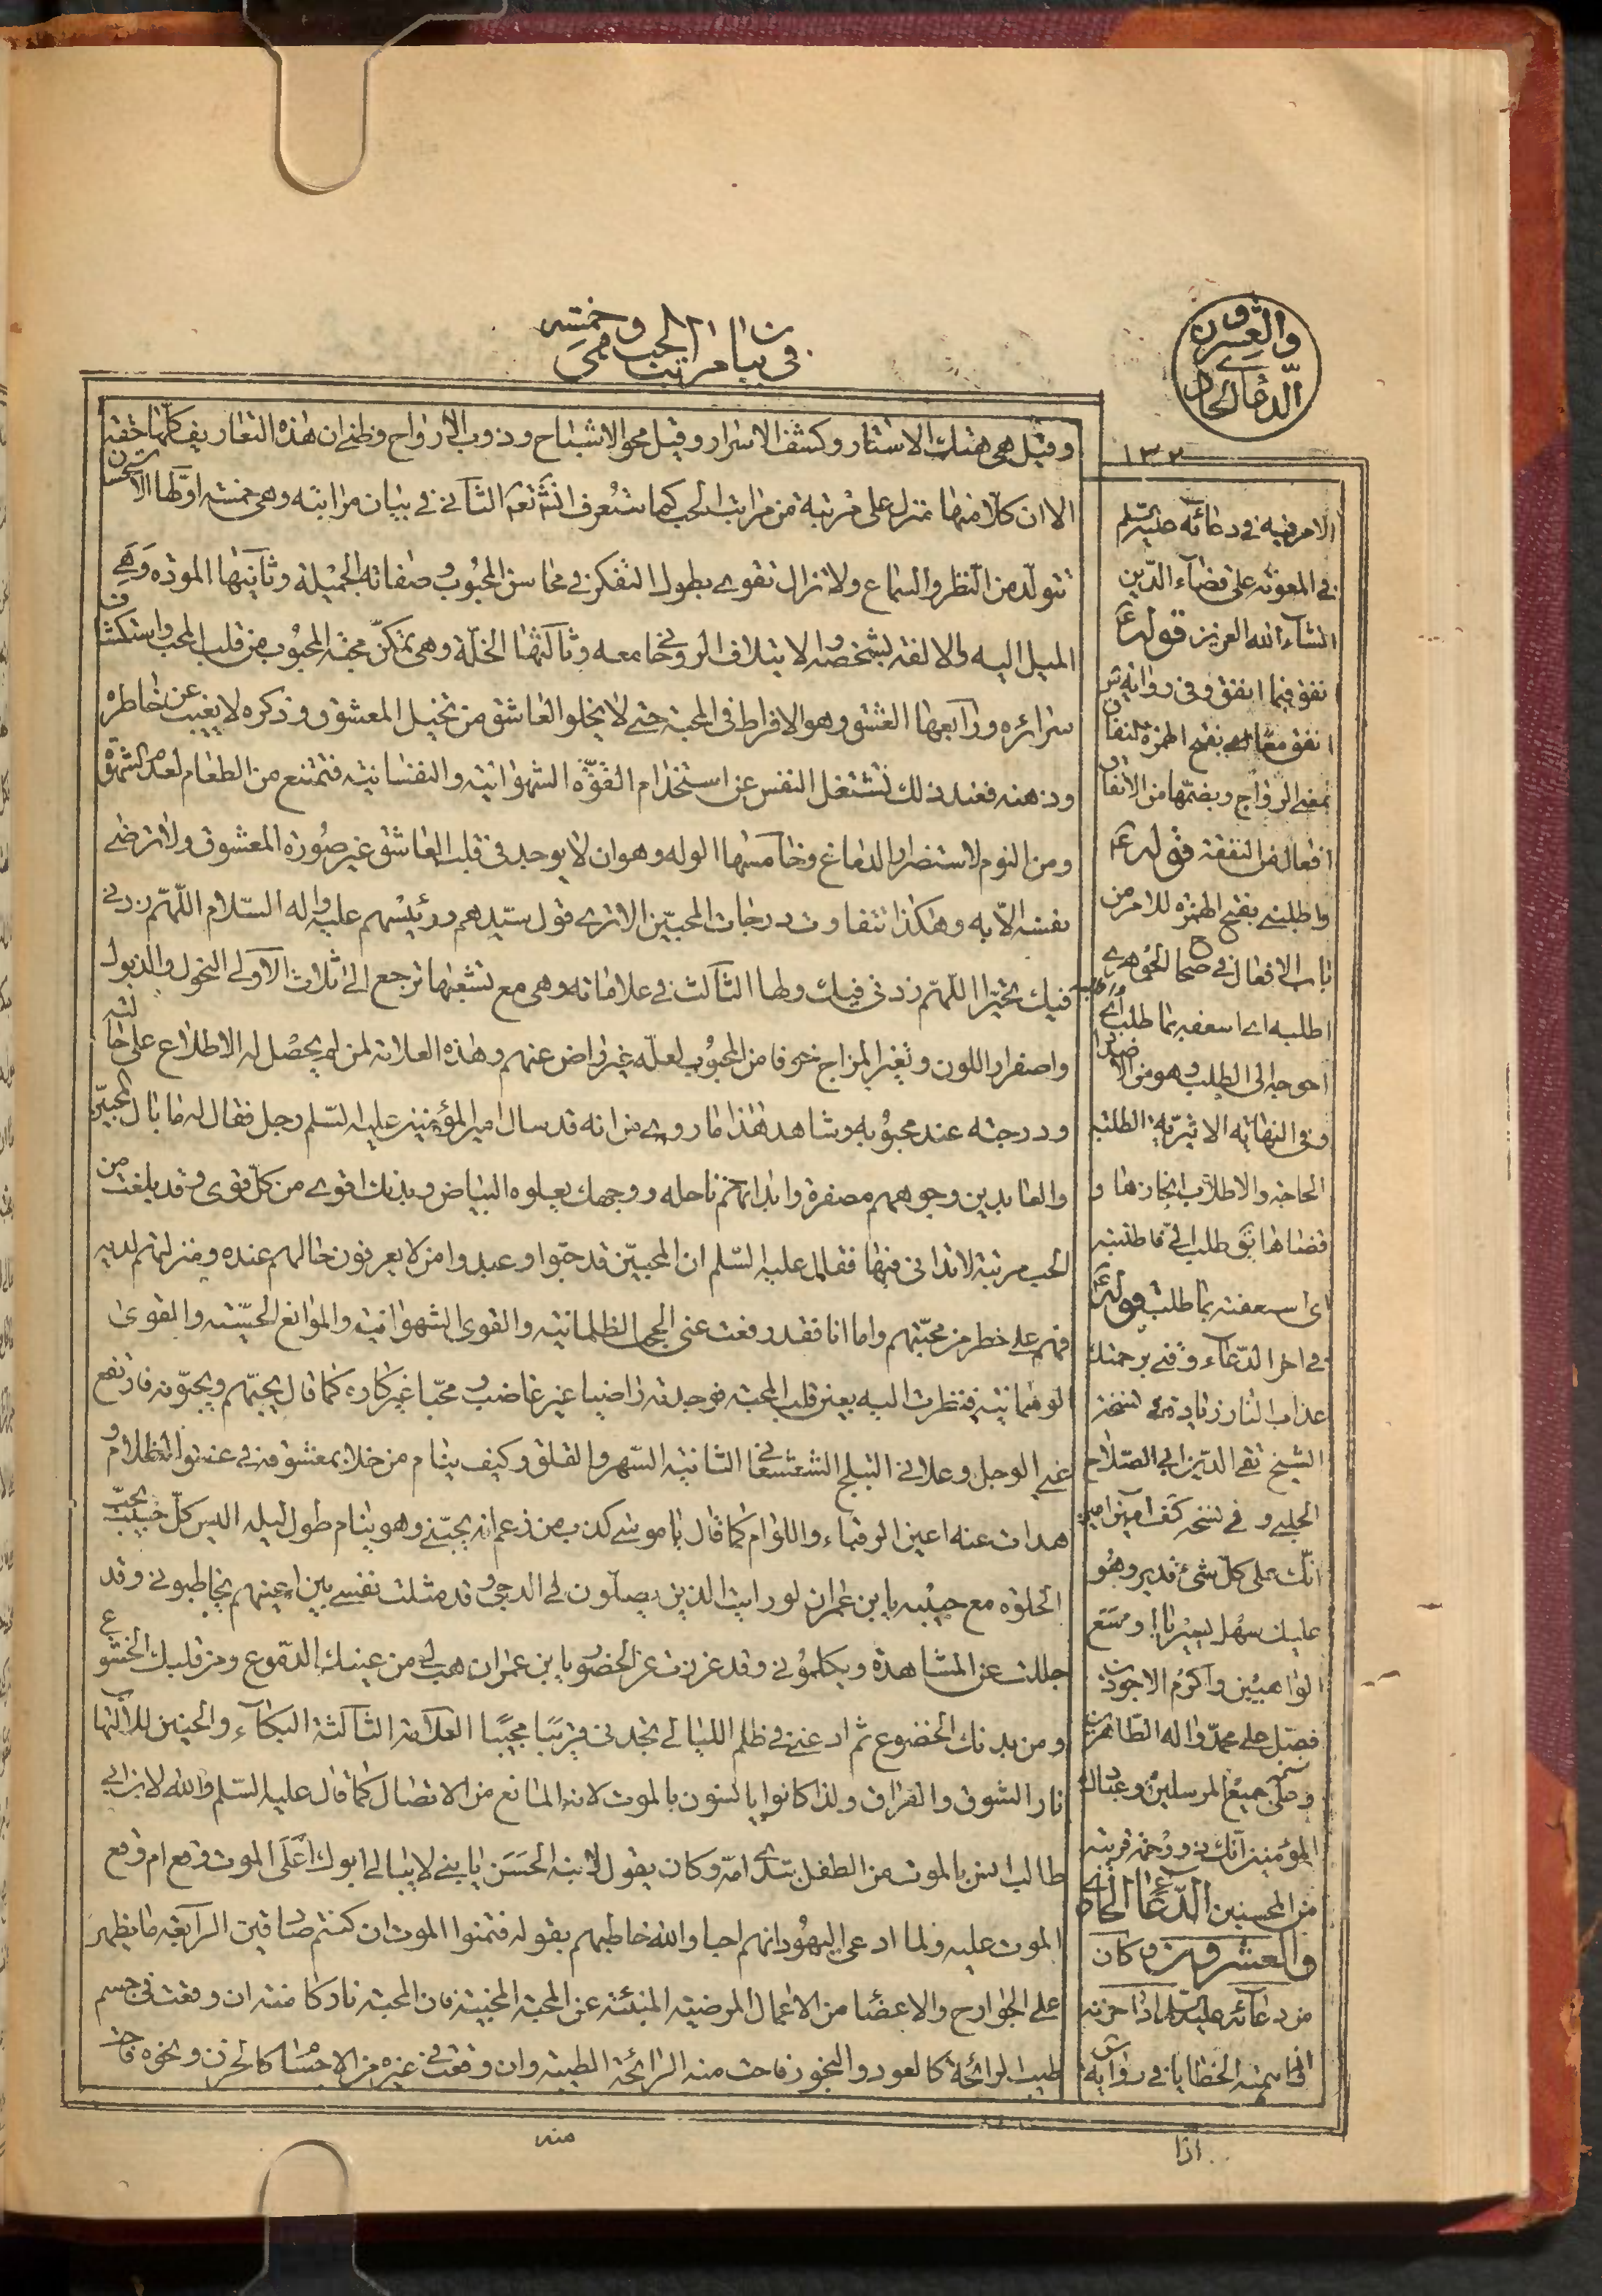 في بيان مراتب الحب وهي خمسة
الدعاء الحادي والعشرون
١٣٢
وقيل هي هتك الاستار وكشف الاسرار وقيل محو الاشباح وذوب الارواح وظني ان هذه التعاريف كلها حقة
الا ان كلا منها منزل على مرتبة من مراتب الحب كما ستعرف انشاء تعه الثاني في بيان مراتبه وهي خمسة اولها الاستحسان
تتولد من النظر والسماع ولا تزال تقوى بطول التفكر في محاسن المحبوب وصفاته الجميلة وثانيها المودة وهي
الميل اليه والالفة بشخصه والايتلاف الروحاني معه وثالثها الخلة وهي تمكن محبة المحبوب من قلب المحب واستكشاف
سرائره ورابعها العشق وهو الافراط في المحبة حتى لا يخلو العاشق من تخيل المعشوق وذكره لا يغيب عن خاطره
وذهنه فعند ذلك تشتغل النفس عن استخدام القوة الشهوانية والنفسانية فتمتنع من الطعام لعدم الشهوة
ومن النوم لاستضرار الدماغ وخامسها الوله وهو ان لا يوجد في قلب العاشق غير صورة المعشوق ولا ترضى
نفسه الا به وهكذا تتفاوت درجات المحبين الا ترى قول سيدهم ورئيسهم عليه واله السلام اللهم زدني
فيك تحيرا اللهم زدني فيك ولها الثالث في علاماته وهي مع تشعبها ترجع الى ثلاث الاولى النحول والذبول
واصفرار اللون وتغير المزاج خوفا من المحبوب لعله غير راض عنهم وهذه العلامة لمن لم يحصل له الاطلاع على حالته
ودرجته عند محبوبه وشاهد هذا ما روي من انه قد سال امير المؤمنين عليه السلم رجل فقال له ما بال المحبين
والعابدين وجوههم مصفرة وابدانهم ناحله ووجهك يعلوه البياض وبدنك اقوى من كل قوى وقد بلغت من
الحب مرتبة لا تدانى فيها فقال عليه السلم ان المحبين قد حبوا وعبدوا من لا يعرفون حالهم عنده ومنزلتهم لديه
فهم على خطر من محبتهم واما انا فقد رفعت عني الحجب الظلمانية والقوى الشهوانية والموانع الحسية والقوى
الوهمانية فنظرت اليه بعين قلب المحبة فوجدته راضيا غير غاضب ومحبا غير كاره كما قال يحبهم ويحبونه فارتفع
عني الوجل وعلاني البلج الشعشعاني الثانية السهر والقلق وكيف ينام من خلا بمعشوقه في عنفوان الظلام و
هدات عنه اعين الرقباء واللوام كما قال يا موسى كذب من زعم انه يحبني وهو ينام طول ليله اليس كل حبيب يحب
الخلوة مع حبيبه يا بن عمران لو رايت الذين يصلون لي الدجى وقد مثلت نفسي بين اعينهم يخاطبوني وقد
جللت عن المشاهدة ويكلموني وقد عززت عن الحضور يا بن عمران هب لي من عينك الدموع ومن قلبك الخشوع
ومن بدنك الخضوع ثم ادعني في ظلم الليالي تجدني قريبا مجيبا العلامة الثالثة البكاء والحنين لالتهاب
نار الشوق والفراق ولذا كانوا يانسون بالموت لانه المانع من الاتصال كما قال عليه السلم والله لابن ابي
طالب انس بالموت من الطفل بثدي امه وكان يقول لابنه الحسن يا بني لا يبالي ابوك اعلى الموت وقع ام وقع
الموت عليه ولما ادعى اليهود انهم احباء الله خاطبهم بقوله فتمنوا الموت ان كنتم صادقين الرابعة ما يظهر
على الجوارح والاعضا من الاعمال المرضية المنبئة عن المحبة المخبية فان المحبة نار كامنة ان وقعت في جسم
طيب الرائحة كالعود والبخور فاحت منه الرائحة الطيبة وان وقعت في غيره من الاجسام كالخرق ونحوه فاحت
منه
الامر فيه في دعائه عليه السلم
في المعونة على قضاء الدين
انشاء الله العزيز قوله ع
انفق فيما انفق وفي رواية س
انفق معا اي بفتح الهمزة لنفاق
بمعنى الرواج وبضمها من الانفاق
افعال من النفقة قوله ع
واطلبني بفتح الهمزة للامر من
باب الافعال في صحاح الجوهري
اطلبه اي اسعفه بما طلب واطلبه اي
احوجه الى الطلب وهو من الاضداد
وفي النهاية الاثيرية الطلبة
الحاجة والاطلاب انجازها و
قضاها يقال طلب الي فاطلبته
اي اسعفته بما طلب قوله ع
في اخر الدعاء وقني برحمتك
عذاب النار زيادة في نسخة
الشيخ تقي الدين ابي الصلاح
الحلبي وفي نسخة كف امين امين
انك على كل شيء قدير وهو
عليك سهل يسير يا اوسع
الواهبين واكرم الاجودين
فصل على محمد واله الطاهرين
وعلى جميع المرسلين وعبادك
المؤمنين انك ذو رحمة قريبة
من المحسنين الدعاء الحادي
والعشرون وكان
من دعائه عليه السلم اذا حزنه
امر واهمته الخطايا في رواية س
اذا